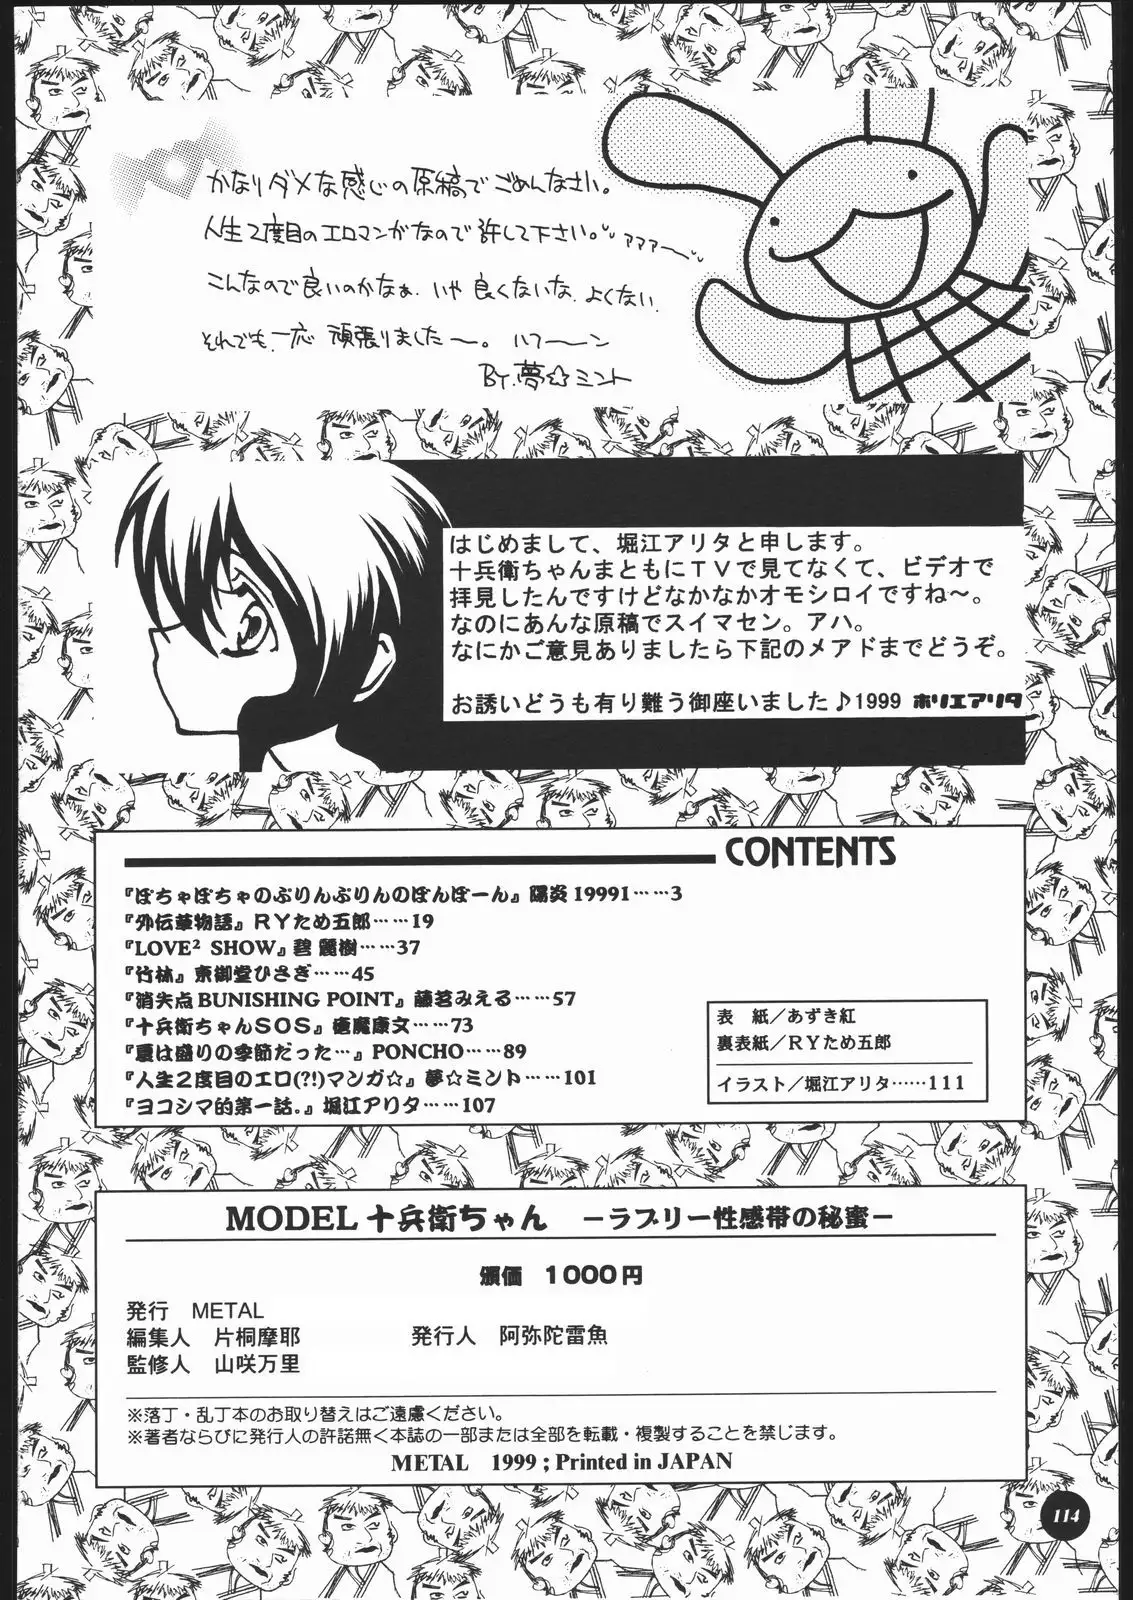 かなりダメな感じの原稿でごめんなさい。
人生2度目のエロマンガなので許して下さい。 アアアー
こんなので良いのかなぁ. いや 良くないな. よくない.
それでも. 一応 頑張りました〜。 ハフーン
By.夢☆ミント
はじめまして、堀江アリタと申します。
十兵衛ちゃんまともにTVで見てなくて、ビデオで
拝見したんですけどなかなかオモシロイですね〜。
なのにあんな原稿でスイマセン。アハ。
なにかご意見ありましたら下記のメアドまでどうぞ。
お誘いどうも有り難う御座いました♪1999 ホリエアリタ
CONTENTS
『ぽちゃぽちゃのぷりんぷりんのぼんぼーん』陽炎19991……3
『外伝華物語』RYため五郎……19
『LOVE² SHOW』碧 麗樹……37
『竹林』東御堂ひさぎ……45
『消失点BUNISHING POINT』藤茗みえる……57
『十兵衛ちゃんSOS』魔康文……73
『夏は盛りの季節だった…』PONCHO……89
『人生2度目のエロ(?!)マンガ☆』夢☆ミント……101
『ヨコシマ的第一話。』堀江アリタ……107
表 紙／あずき紅
裏表紙／RYため五郎
イラスト／堀江アリタ……111
MODEL 十兵衛ちゃん －ラブリー性感帯の秘蜜－
頒価 1000円
発行 METAL
編集人 片桐摩耶 発行人 阿弥陀雷魚
監修人 山咲万里
※落丁・乱丁本のお取り替えはご遠慮ください。
※著者ならびに発行人の許諾無く本誌の一部または全部を転載・複製することを禁じます。
METAL 1999 ; Printed in JAPAN
114